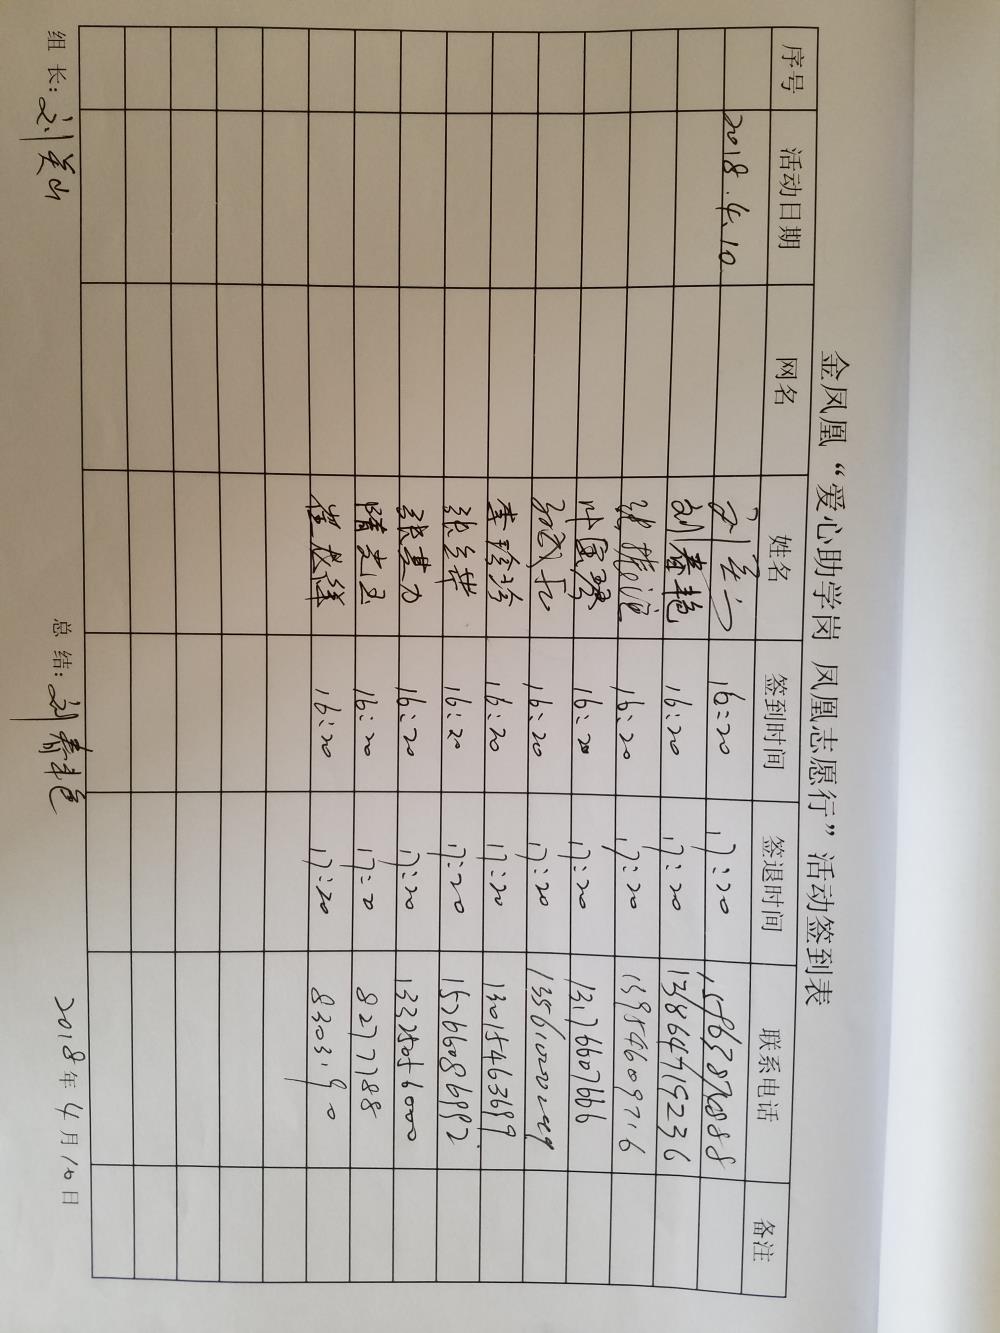 金凤凰“爱心助学岗 凤凰志愿行”活动签到表
序号 活动日期 网名 姓名 签到时间 签退时间 联系电话 备注
2018.4.10 16:20 17:20
刘春艳 16:20 17:20 13864719236
16:20 17:20 13954609716
叶 16:20 17:20 13176607666
16:20 17:20
李珍珍 16:20 17:20 13015463699
张 16:20 17:20 15266086992
张其力 16:20 17:20 13325056000
隋 16:20 17:20 8277788
崔 16:20 17:20 8303190
组长: 刘 总结: 刘春艳 2018年4月10日